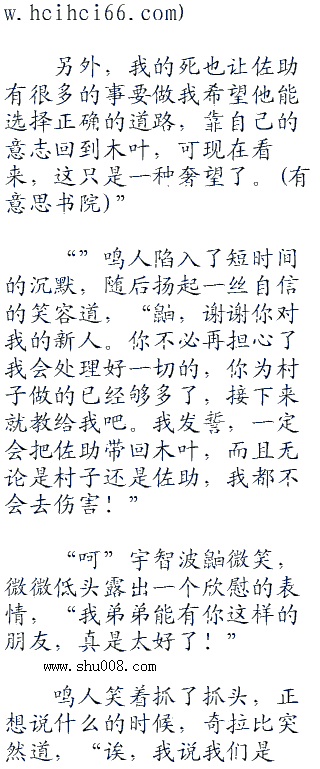 w.hcihci66.com)
另外，我的死也让佐助
有很多的事要做我希望他能
选择正确的道路，靠自己的
意志回到木叶，可现在看
来，这只是一种奢望了。(有
意思书院)”
“”鸣人陷入了短时间
的沉默，随后扬起一丝自信
的笑容道，“鼬，谢谢你对
我的新人。你不必再担心了
我会处理好一切的，你为村
子做的已经够多了，接下来
就教给我吧。我发誓，一定
会把佐助带回木叶，而且无
论是村子还是佐助，我都不
会去伤害！”
“呵”宇智波鼬微笑，
微微低头露出一个欣慰的表
情，“我弟弟能有你这样的
朋友，真是太好了！”
www.shu008.com
鸣人笑着抓了抓头，正
想说什么的时候，奇拉比突
然道，“诶，我说我们是